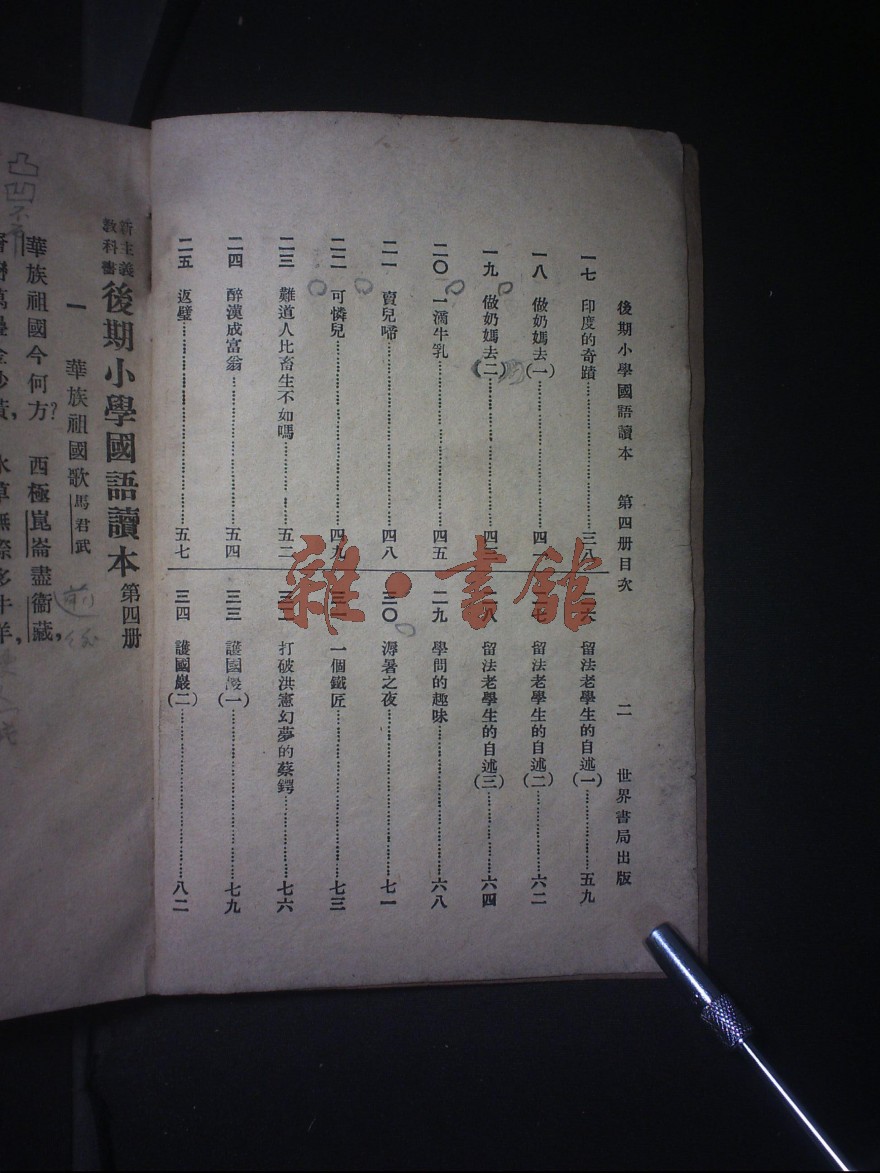 後期小學國語讀本 第四册目次 二 世界書局出版
一七 印度的奇蹟……三八
一八 做奶媽去(一)……四一
一九 做奶媽去(二)……四三
二〇 一滴牛乳……四五
二一 賣兒啼……四八
二二 可憐兒……四九
二三 難道人比畜生不如嗎……五二
二四 醉漢成富翁……五四
二五 返璧……五七
二六 留法老學生的自述(一)……五九
二七 留法老學生的自述(二)……六二
二八 留法老學生的自述(三)……六四
二九 學問的趣味……六八
三〇 溽暑之夜……七一
三一 一個鐵匠……七三
三二 打破洪憲幻夢的蔡鍔……七六
三三 護國巖(一)……七九
三四 護國巖(二)……八二
雜·書館
新主義教科書 後期小學國語讀本 第四册
一 華族祖國歌 馬君武
華族祖國今何方? 西極崑崙盡衞藏,
凸凹不
前後